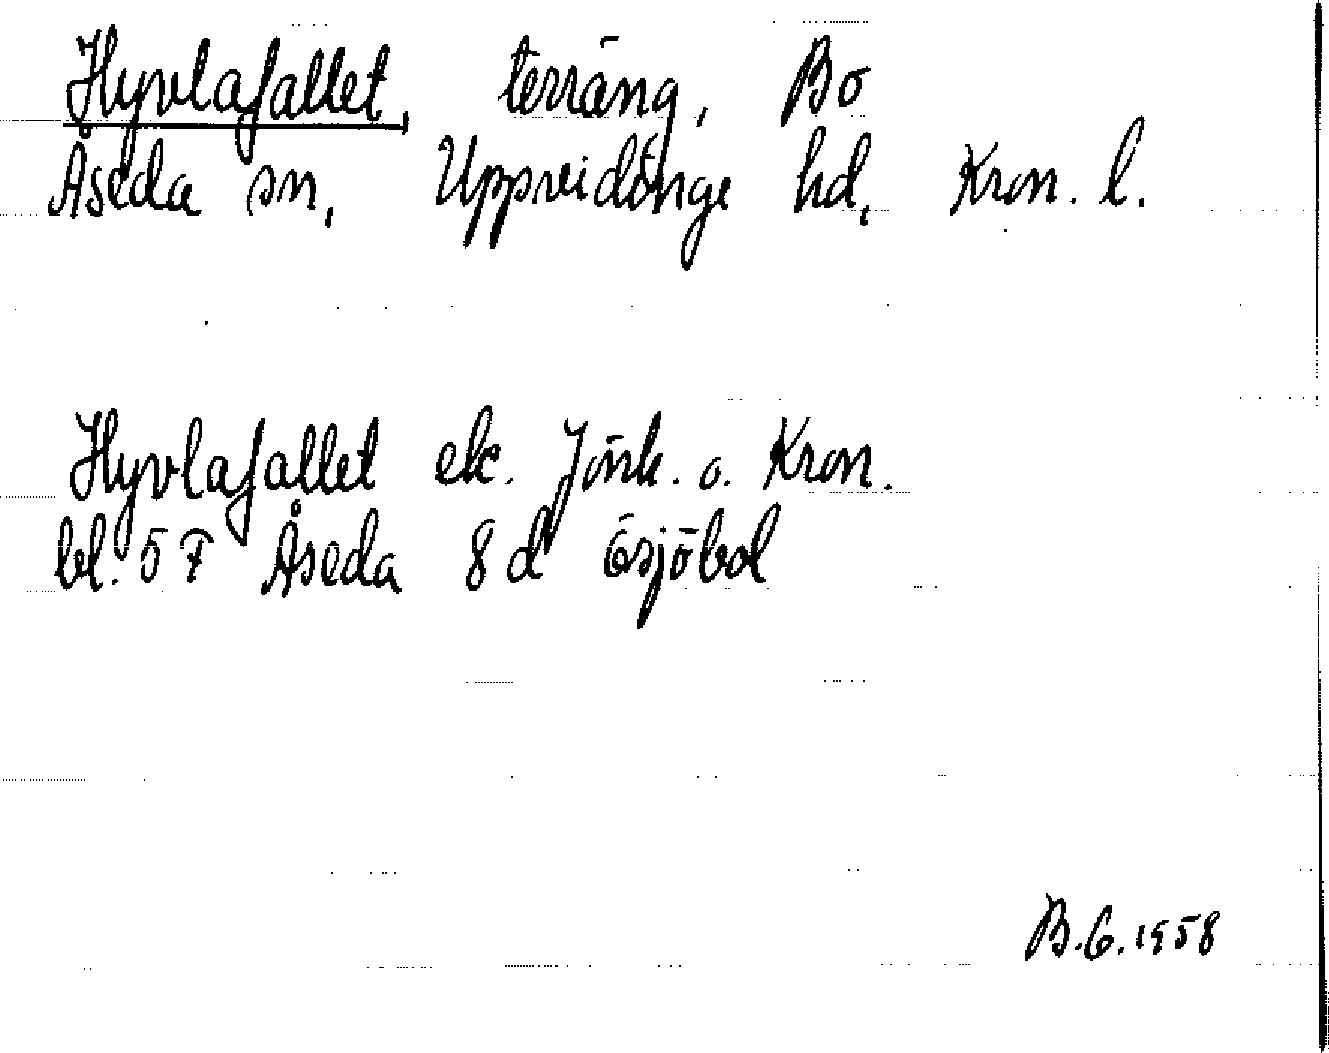 Hyvlafallet, terräng, Bo
Åseda sn, Uppvidinge hd, Kron. l.
Hyvlafallet ek. Jönk. o. Kron.
bl. 5 F Åseda 8 d Ösjöbol
B.G. 1958